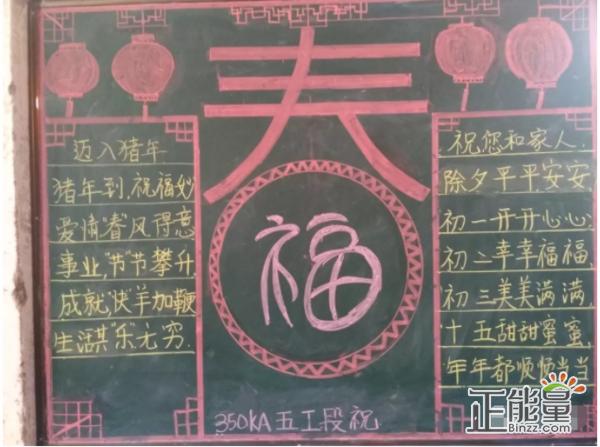 春
福
迈入猪年
猪年到,祝福妙
爱情"春"风得意
事业,"节"节攀升,
成就"快"羊加鞭
生活其"乐"无穷.
祝您和家人.
除夕平平安安,
初一开开心心;
初二幸幸福福,
初三美美满满,
十五甜甜蜜蜜,
年年都顺顺当当
350KA五工段祝
正能量
Binzz.com